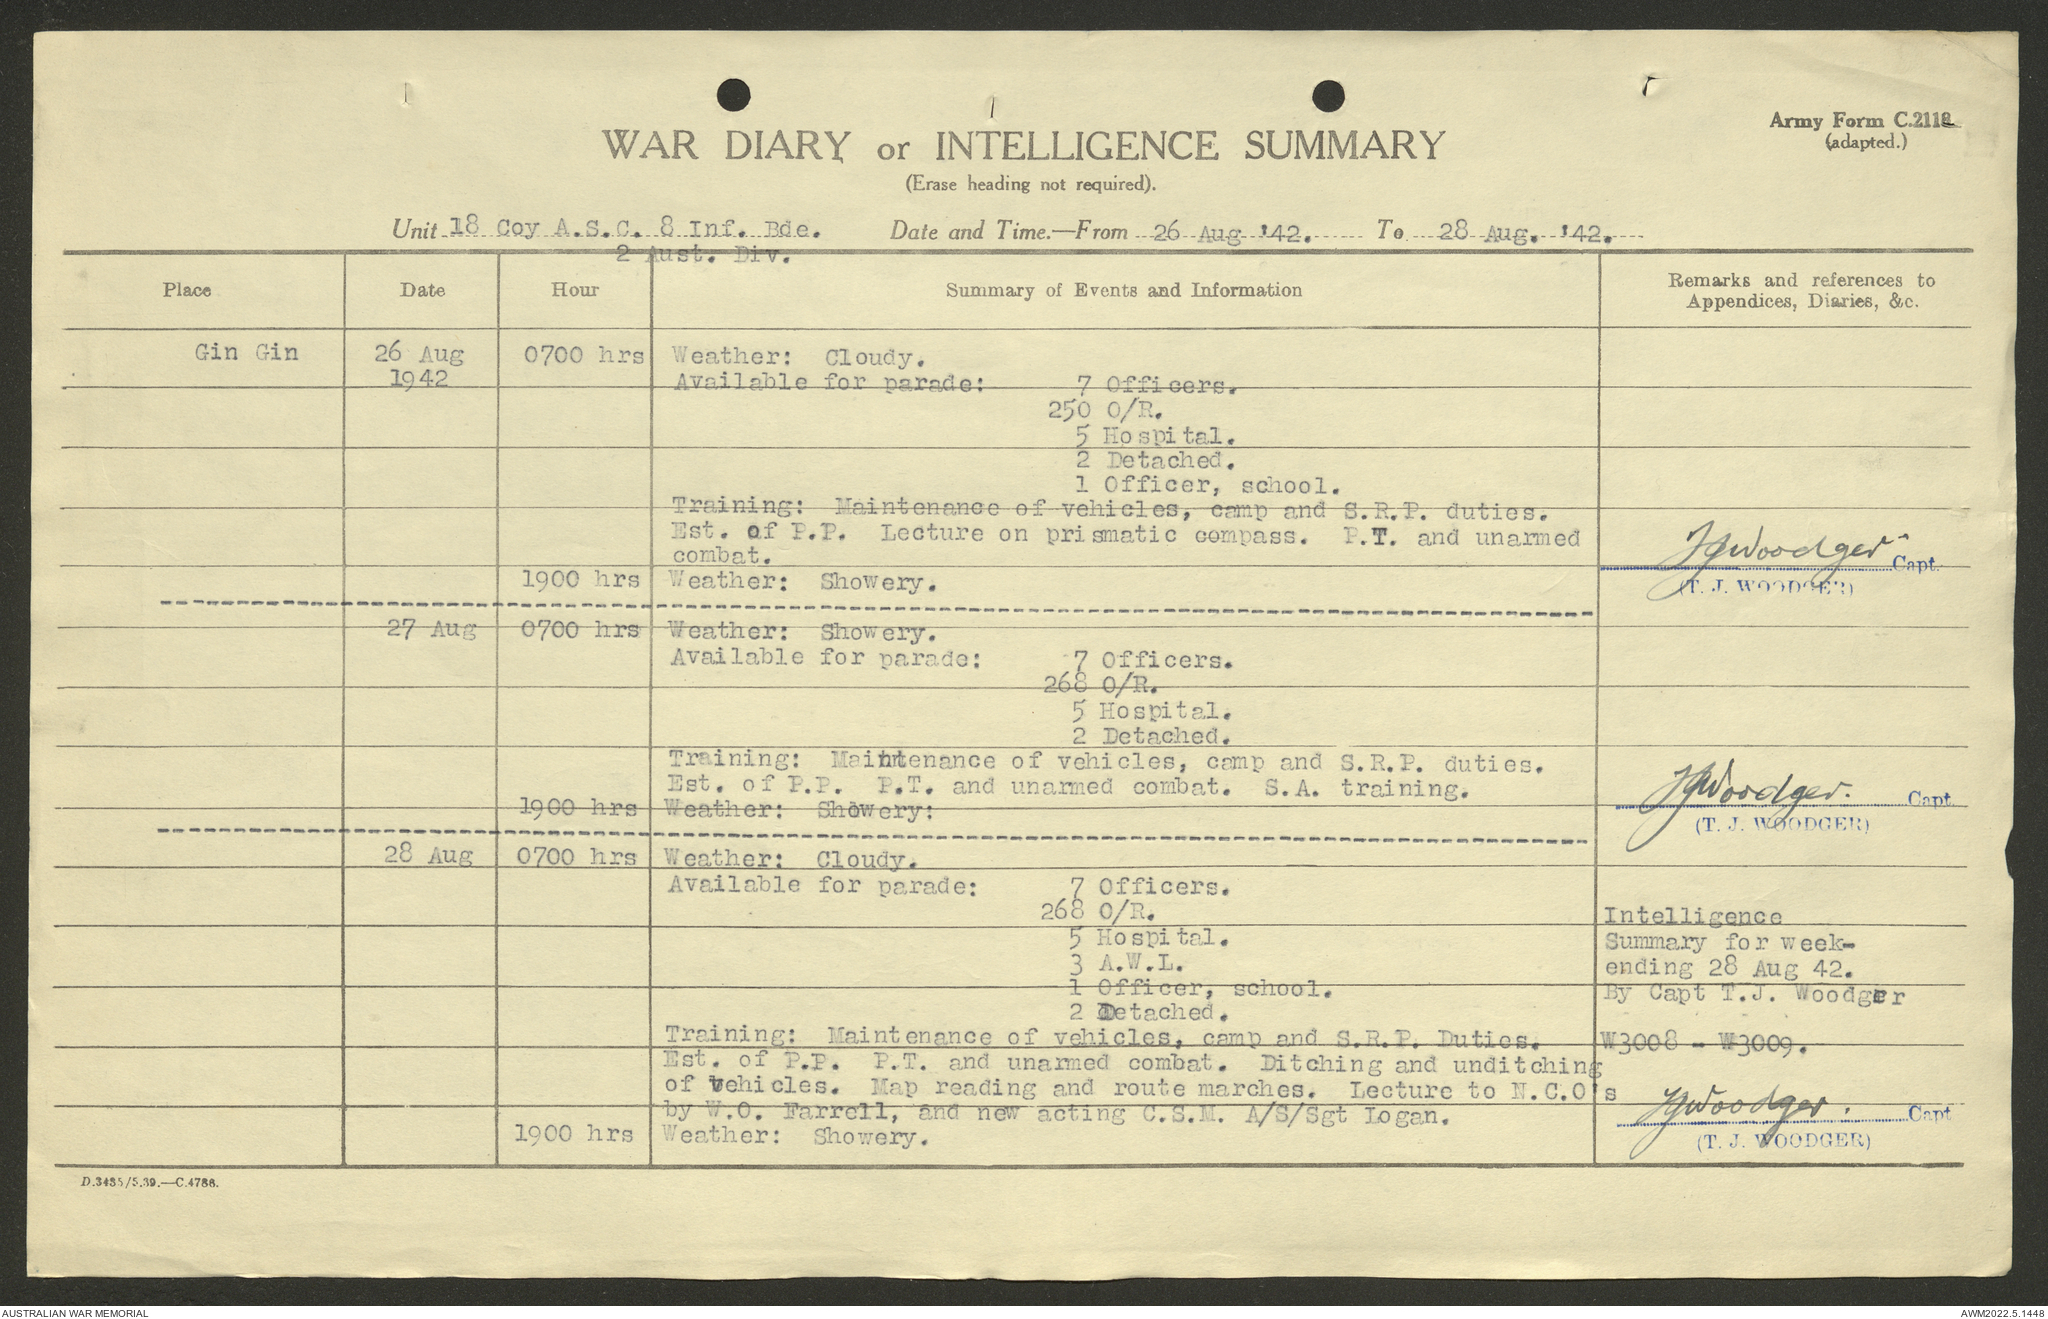 Army Form C.2118
(adapted.)
WAR DIARY or INTELLIGENCE SUMMARY
(Erase heading not required).
Unit 18 Coy A.S.C. 8 Inf. Bde. Date and Time.—From 26 Aug '42. To 28 Aug. '42.
2 Aust. Div.
Place Date Hour Summary of Events and Information Remarks and references to
Appendices, Diaries, &c.
Gin Gin 26 Aug 0700 hrs Weather: Cloudy.
1942 Available for parade: 7 Officers.
250 O/R.
5 Hospital.
2 Detached.
1 Officer, school.
Training: Maintenance of vehicles, camp and S.R.P. duties.
Est. of P.P. Lecture on prismatic compass. P.T. and unarmed
combat.
TJWoodger Capt
(T. J. WOODGER)
1900 hrs Weather: Showery.
27 Aug 0700 hrs Weather: Showery.
Available for parade: 7 Officers.
268 O/R.
5 Hospital.
2 Detached.
Training: Maintenance of vehicles, camp and S.R.P. duties.
Est. of P.P. P.T. and unarmed combat. S.A. training.
1900 hrs Weather: Showery:
TJWoodger. Capt
(T. J. WOODGER)
28 Aug 0700 hrs Weather: Cloudy.
Available for parade: 7 Officers.
268 O/R.
5 Hospital.
3 A.W.L.
1 Officer, school.
2 Detached.
Intelligence
Summary for week-
ending 28 Aug 42.
By Capt T.J. Woodger
W3008 - W3009.
Training: Maintenance of vehicles, camp and S.R.P. Duties.
Est. of P.P. P.T. and unarmed combat. Ditching and unditching
of vehicles. Map reading and route marches. Lecture to N.C.O's
by W.O. Farrell, and new acting C.S.M. A/S/Sgt Logan.
1900 hrs Weather: Showery.
TJWoodger. Capt
(T. J. WOODGER)
D.3435/5.39.—C.4786.
AUSTRALIAN WAR MEMORIAL
AWM2022.5.1448